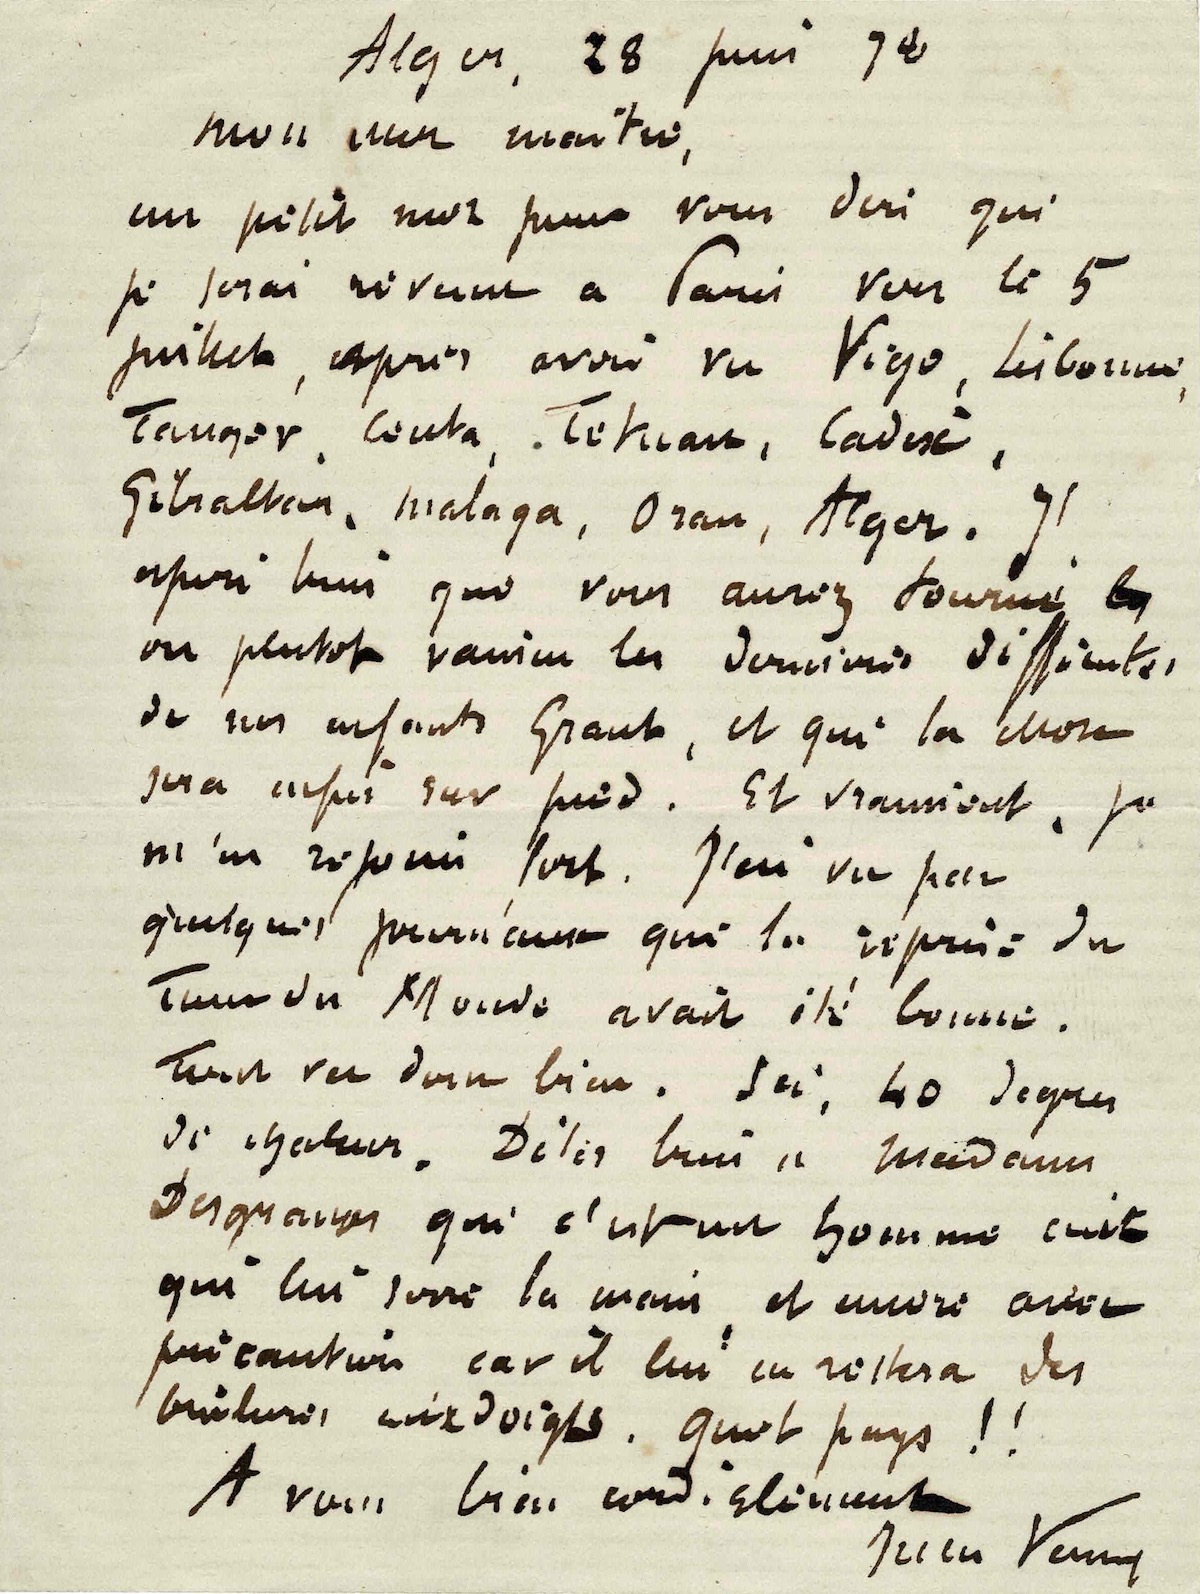 Alger, 28 juin 78
Mon cher maître,
un petit mot pour vous dire que
je serai revenu a Paris vers le 5
juillet, après avoir vu Vigo, Lisbonne,
Tanger, Ceuta, Tetuan, Cadix,
Gibraltar, Malaga, Oran, Alger. J'
espère bien que vous aurez tourné
ou plutot vaincu les dernières difficultés
de nos enfants Grant, et que la chose
sera enfin sur pied. Et vraiment, je
m'en rejouis fort. J'ai vu par
quelques journaux que la reprise du
Tour du Monde avait été bonne.
Tout va donc bien. Ici, 40 degrés
de chaleur. Dites bien a Madame
Desgranges que c'est un homme cuit
qui lui serre la main, et encore avec
précaution car il lui en restera des
brûlures aux doigts. Quel pays !!
A vous bien cordialement
Jules Verne